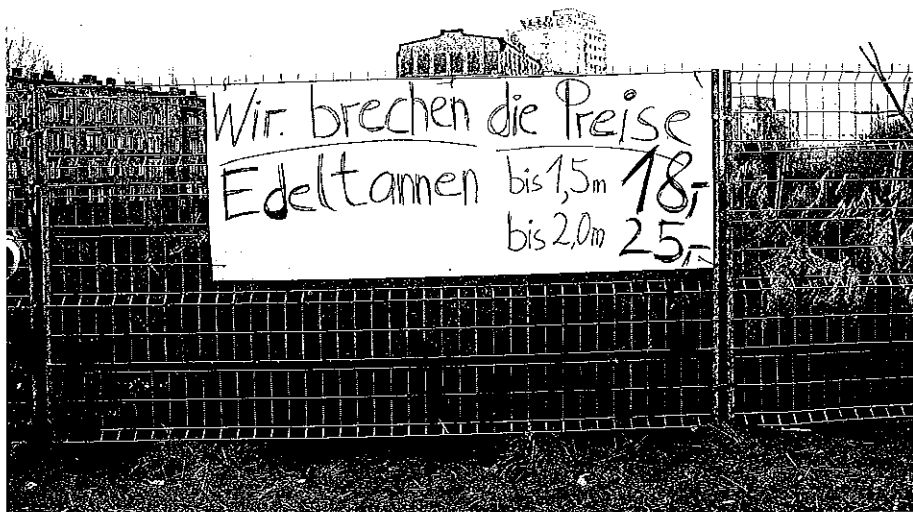 Wir brechen die Preise
Edeltannen bis 1,5m 18,-
bis 2,0m 25,-